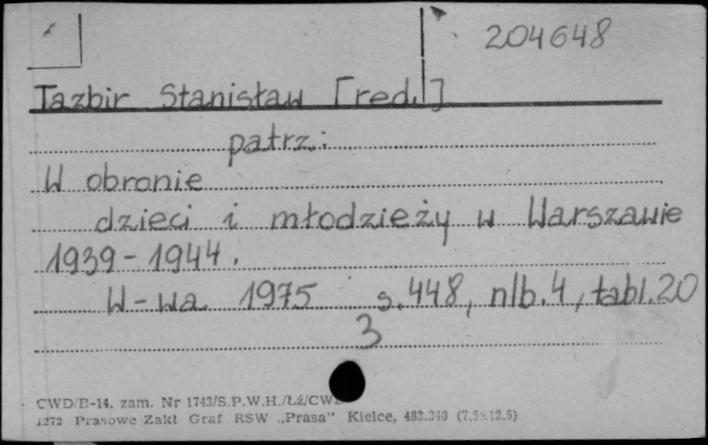 204648
Tazbir Stanisław [red.]
patrz:
W obronie
dzieci i młodzieży w Warszawie
1939-1944.
W-wa 1975 s. 448, nlb. 4, tabl. 20
3
CWD/B-14. zam. Nr 1743/S.P.W.H./Łź/CW
1272 Prasowe Zakł Graf RSW „Prasa" Kielce, 483.340 (7,5×12,5)